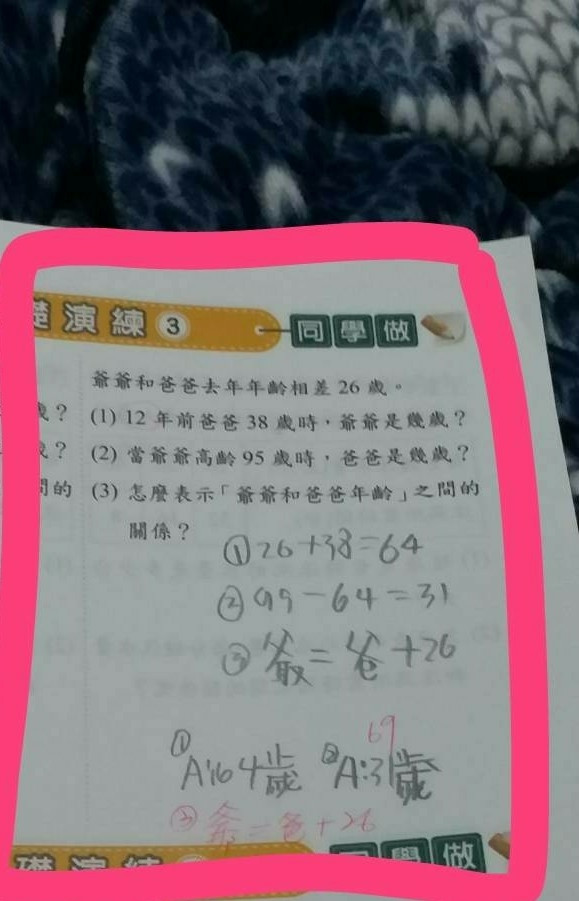 礎演練3 同學做
爺爺和爸爸去年年齡相差26歲。
歲? (1) 12年前爸爸38歲時,爺爺是幾歲?
歲? (2) 當爺爺高齡95歲時,爸爸是幾歲?
間的 (3) 怎麼表示「爺爺和爸爸年齡」之間的
關係?
①26+38=64
②95-64=31
③爺=爸+26
69
① A:64歲 ② A:31歲
③爺=爸+26
礎演練 同學做